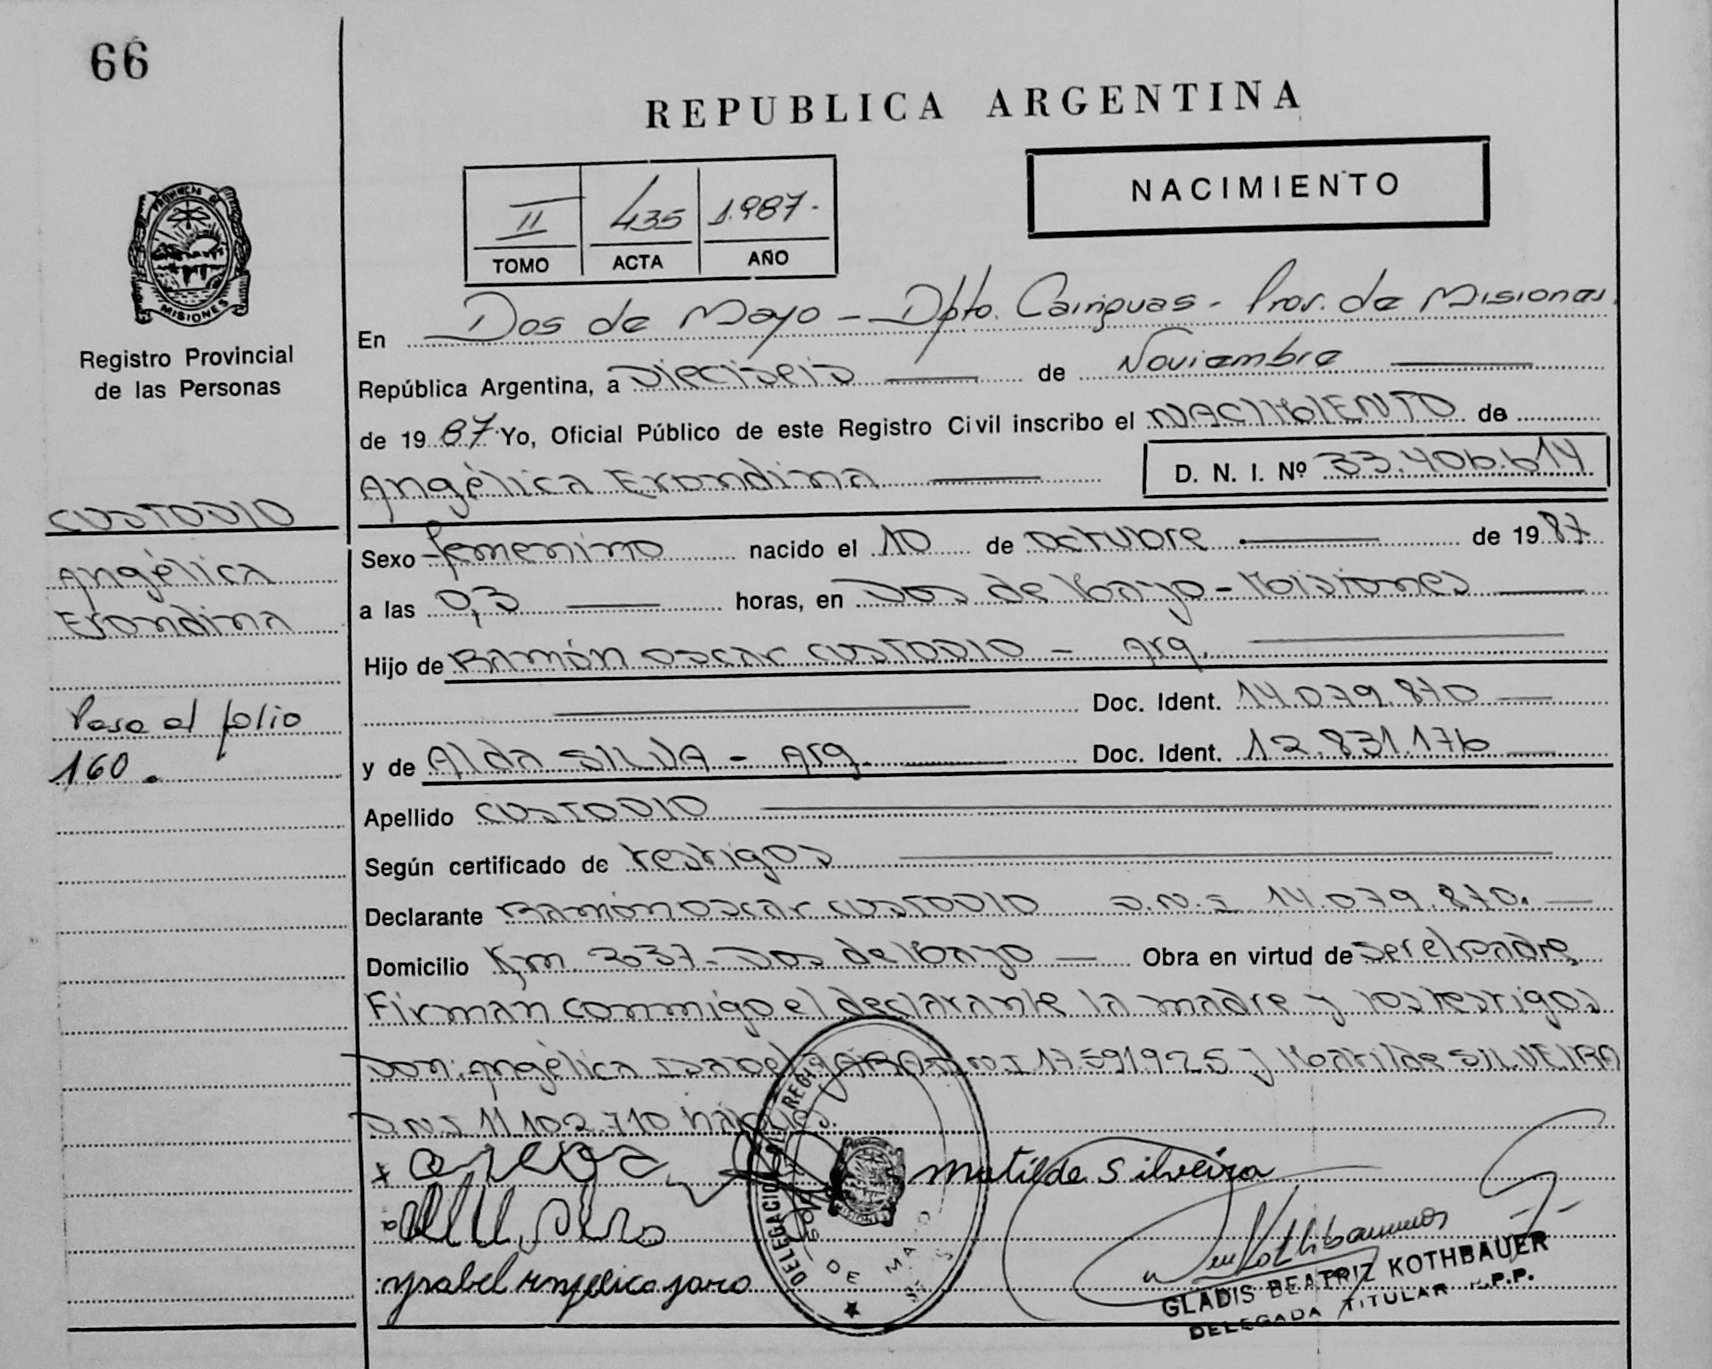 66
REPUBLICA ARGENTINA
NACIMIENTO
II 435 1.987.-
TOMO ACTA AÑO
PROVINCIA DE
MISIONES
Registro Provincial
de las Personas
En Dos de Mayo - Dpto. Cainguas - Prov. de Misiones.
República Argentina, a Dieciseis de Noviembre
de 1987 Yo, Oficial Público de este Registro Civil inscribo el NACIMIENTO de
Angélica Erondina D. N. I. Nº 33.406.614
CUSTODIO
Angélica
Erondina
Pasa al folio
160.
Sexo femenino nacido el 10 de octubre de 1987
a las 0,3 horas, en Dos de Mayo - Misiones
Hijo de RAMÓN OSCAR CUSTODIO - Arg.
Doc. Ident. 14.079.870
y de Alda SILVA - Arg. Doc. Ident. 12.831.176
Apellido CUSTODIO
Según certificado de testigos
Declarante RAMÓN OSCAR CUSTODIO D.N.I 14.079.870.
Domicilio Km 237 - Dos de Mayo Obra en virtud de ser el padre
Firman conmigo el declarante la madre y los testigos
Don: Angélica Isabel JARA D.N.I 17.591.925 y Matilde SILVEIRA
D.N.I 11.102.710
DELEGACION REGIS
DOS DE MAYO
Matilde Silveira
Ysabel Angelica Jara
Kothbauer
GLADIS BEATRIZ KOTHBAUER
DELEGADA TITULAR R.P.P.